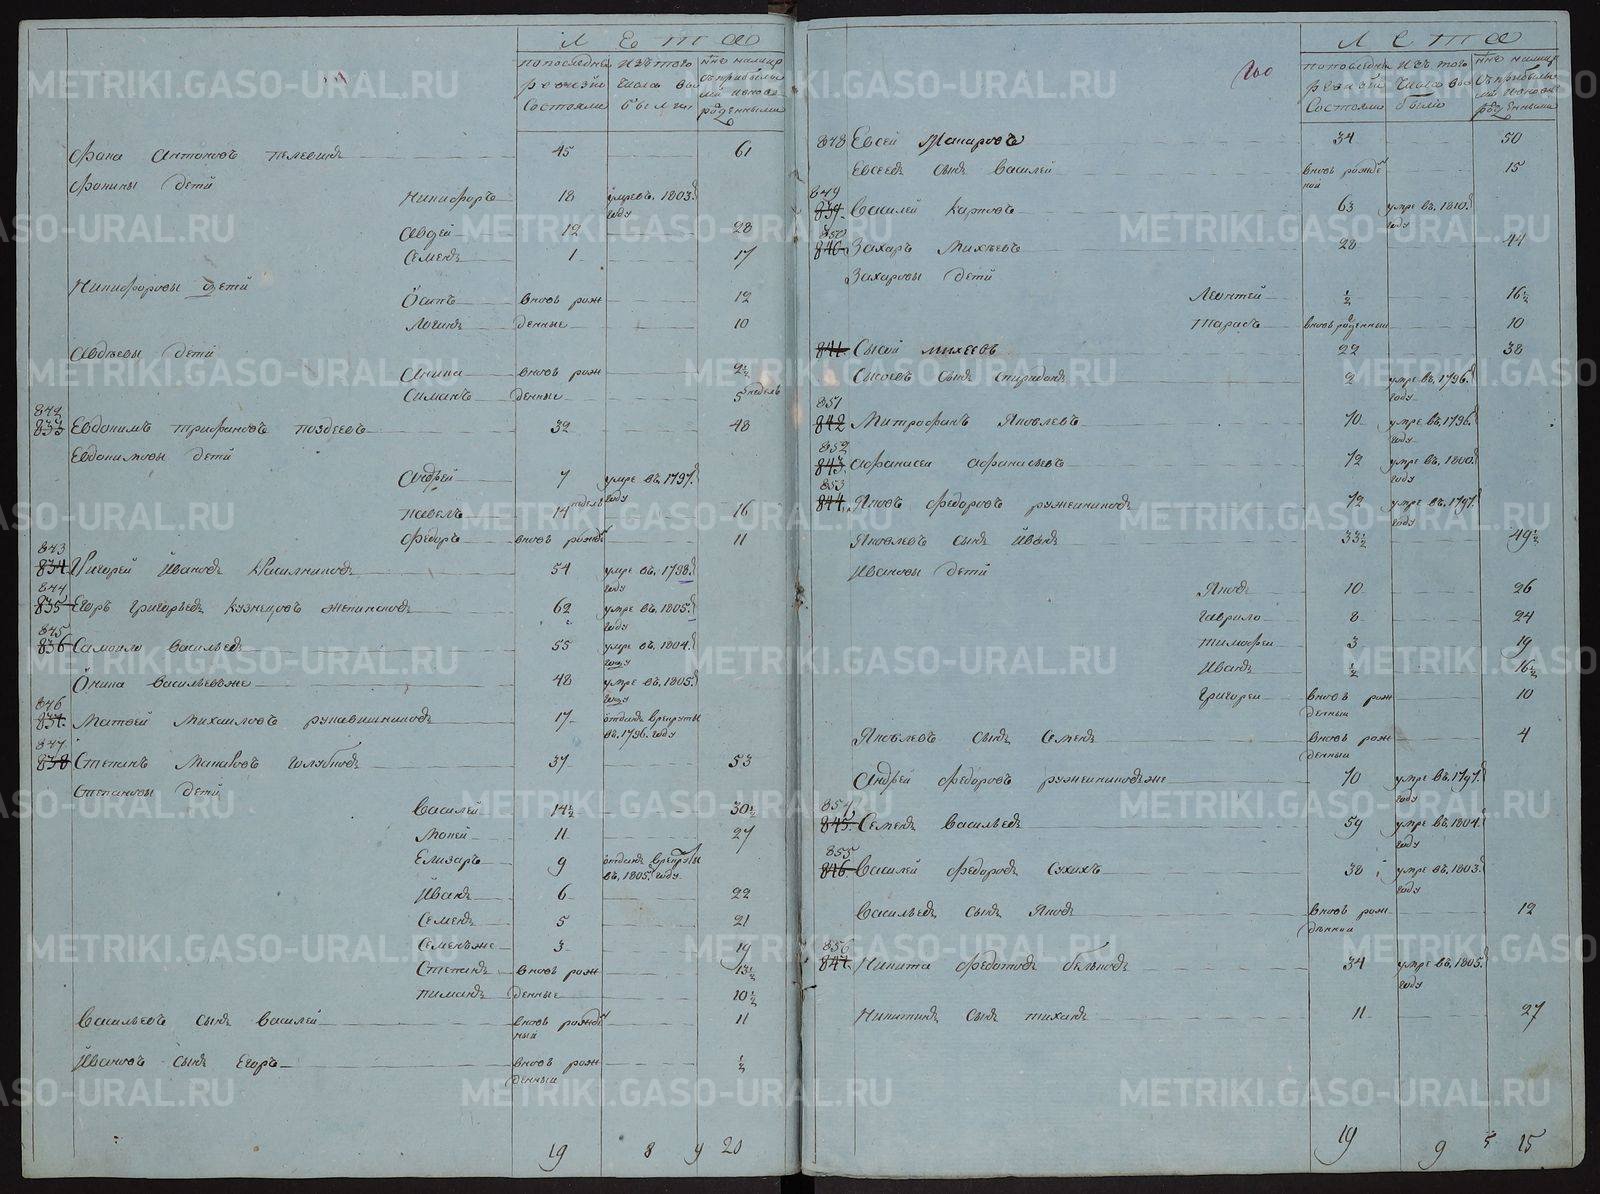 Л Е Т А
по последней ревизіи состояло
изъ того числа выбыло
нынѣ налицо съ прибылыми и новорожденными
Фока Антоновъ 45 61
Фокины дети
Никифоръ 18 умре въ 1803. году
Авдей 12 28
Семенъ 1 17
Никифоровы дети
Осипъ вновь рож 12
Логинъ денные 10
Авдѣевы дети
Аника вновь рож 2½
Симанъ денные 5 недель
842
833 Евдокимъ Трифановъ Поздеевъ 32 48
Евдокимовы дети
Андрей 7 умре въ 1797. году
Павелъ 14 недель 16
Федоръ вновь рожде 11
843
834 Григорей Ивановъ Красилниковъ 54 умре въ 1798. году
844
835 Егоръ Григорьевъ Кузнецовъ 62 умре въ 1805. году
845
836 Самойло Васильевъ 55 умре въ 1804. году
Васильевъ же 48 умре въ 1805. году
846
837 Матвей Михайловъ Рукавишниковъ 17 отданъ в рекруты въ 1796. году
847
838 Степанъ Макаровъ Голубковъ 37 53
Степановы дети
Василей 14½ 30½
Мокей 11 27
Елизаръ 9 отданъ в рекруты въ 1805. году
Иванъ 6 22
Семенъ 5 21
Семенъ же 3 19
Степанъ вновь рож 13½
Пиманъ денные 10½
Васильевъ сынъ Василей вновь рожде ный 11
Ивановъ сынъ Егоръ вновь рож денный ½
19 8 9 20
Л Е Т А
по последней ревизіи состояло
изъ того числа выбыло
нынѣ налицо съ прибылыми и новорожденными
848 Евсей Макаровъ 34 50
Евсеевъ сынъ Василей вновь рожде ной 15
849
839 Василей Карповъ 63 умре въ 1810. году
850
840 Захаръ Михѣевъ 28 44
Захаровы дети
Леонтей ½ 16½
Тарасъ вновь рожденный 10
841 Сысой Михеевъ 22 38
Сысоевъ сынъ Спиридонъ 2 умре въ 1796. году
851
842 Митрофанъ Яковлевъ 70 умре въ 1796. году
852
843 Афанасей Афанасьевъ 72 умре въ 1800. году
853
844 Яковъ Федоровъ Ружейниковъ 72 умре въ 1797. году
Яковлевъ сынъ Иванъ 33½ 49½
Ивановы дети
Яковъ 10 26
Гаврило 8 24
Тимофей 3 19
Иванъ ½ 16½
Григорей вновь рож денный 10
Яковлевъ сынъ Семенъ вновь рож денный 4
Андрей Федоровъ Ружейниковъ же 70 умре въ 1797. году
854
845 Семенъ Васильевъ 59 умре въ 1804. году
855
846 Василей Федоровъ Сухихъ 38 умре въ 1803. году
Васильевъ сынъ Яковъ вновь рож денной 12
856
847 Никита Федотовъ Бѣлковъ 34 умре въ 1805. году
Никитинъ сынъ Тиханъ 11 27
19 9 5 15
METRIKI.GASO-URAL.RU